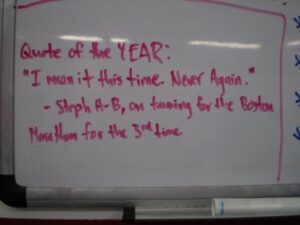 Quote of the YEAR:
"I mean it this time. Never Again."
- Steph A-B, on training for the Boston
Marathon for the 3rd time